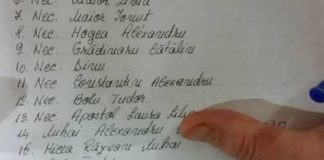 6. Nec.
7. Nec. Maior Ionut
8. Nec. Hogea Alexandru
9. Nec. Grădinaru Cătălin
10. Nec. Dinu
11. Nec. Constantin Alexandru
12. Nec. Tudor
13. Nec. Apostol Laura
14. Mihai Alexandru
15. Răzvan Mihai